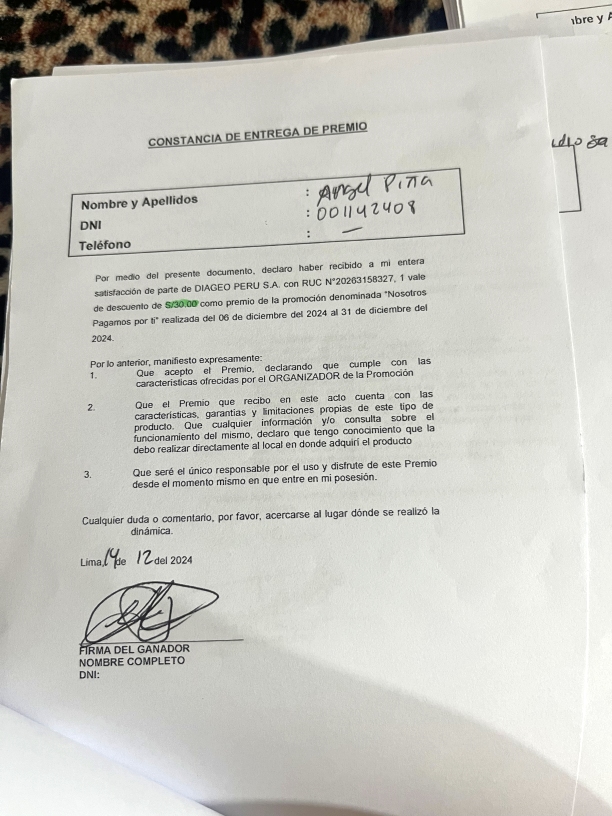 ibre y A
CONSTANCIA DE ENTREGA DE PREMIO
Nombre y Apellidos : Angel Piña
DNI : 001142408
Teléfono : —
Por medio del presente documento, declaro haber recibido a mi entera
satisfacción de parte de DIAGEO PERU S.A. con RUC N°20263158327, 1 vale
de descuento de S/30.00 como premio de la promoción denominada "Nosotros
Pagamos por ti" realizada del 06 de diciembre del 2024 al 31 de diciembre del
2024.
Por lo anterior, manifiesto expresamente:
1. Que acepto el Premio, declarando que cumple con las
características ofrecidas por el ORGANIZADOR de la Promoción
2. Que el Premio que recibo en este acto cuenta con las
características, garantias y limitaciones propias de este tipo de
producto. Que cualquier información y/o consulta sobre el
funcionamiento del mismo, declaro que tengo conocimiento que la
debo realizar directamente al local en donde adquirí el producto
3. Que seré el único responsable por el uso y disfrute de este Premio
desde el momento mismo en que entre en mi posesión.
Cualquier duda o comentario, por favor, acercarse al lugar dónde se realizó la
dinámica.
Lima, 14 de 12 del 2024
FIRMA DEL GANADOR
NOMBRE COMPLETO
DNI: